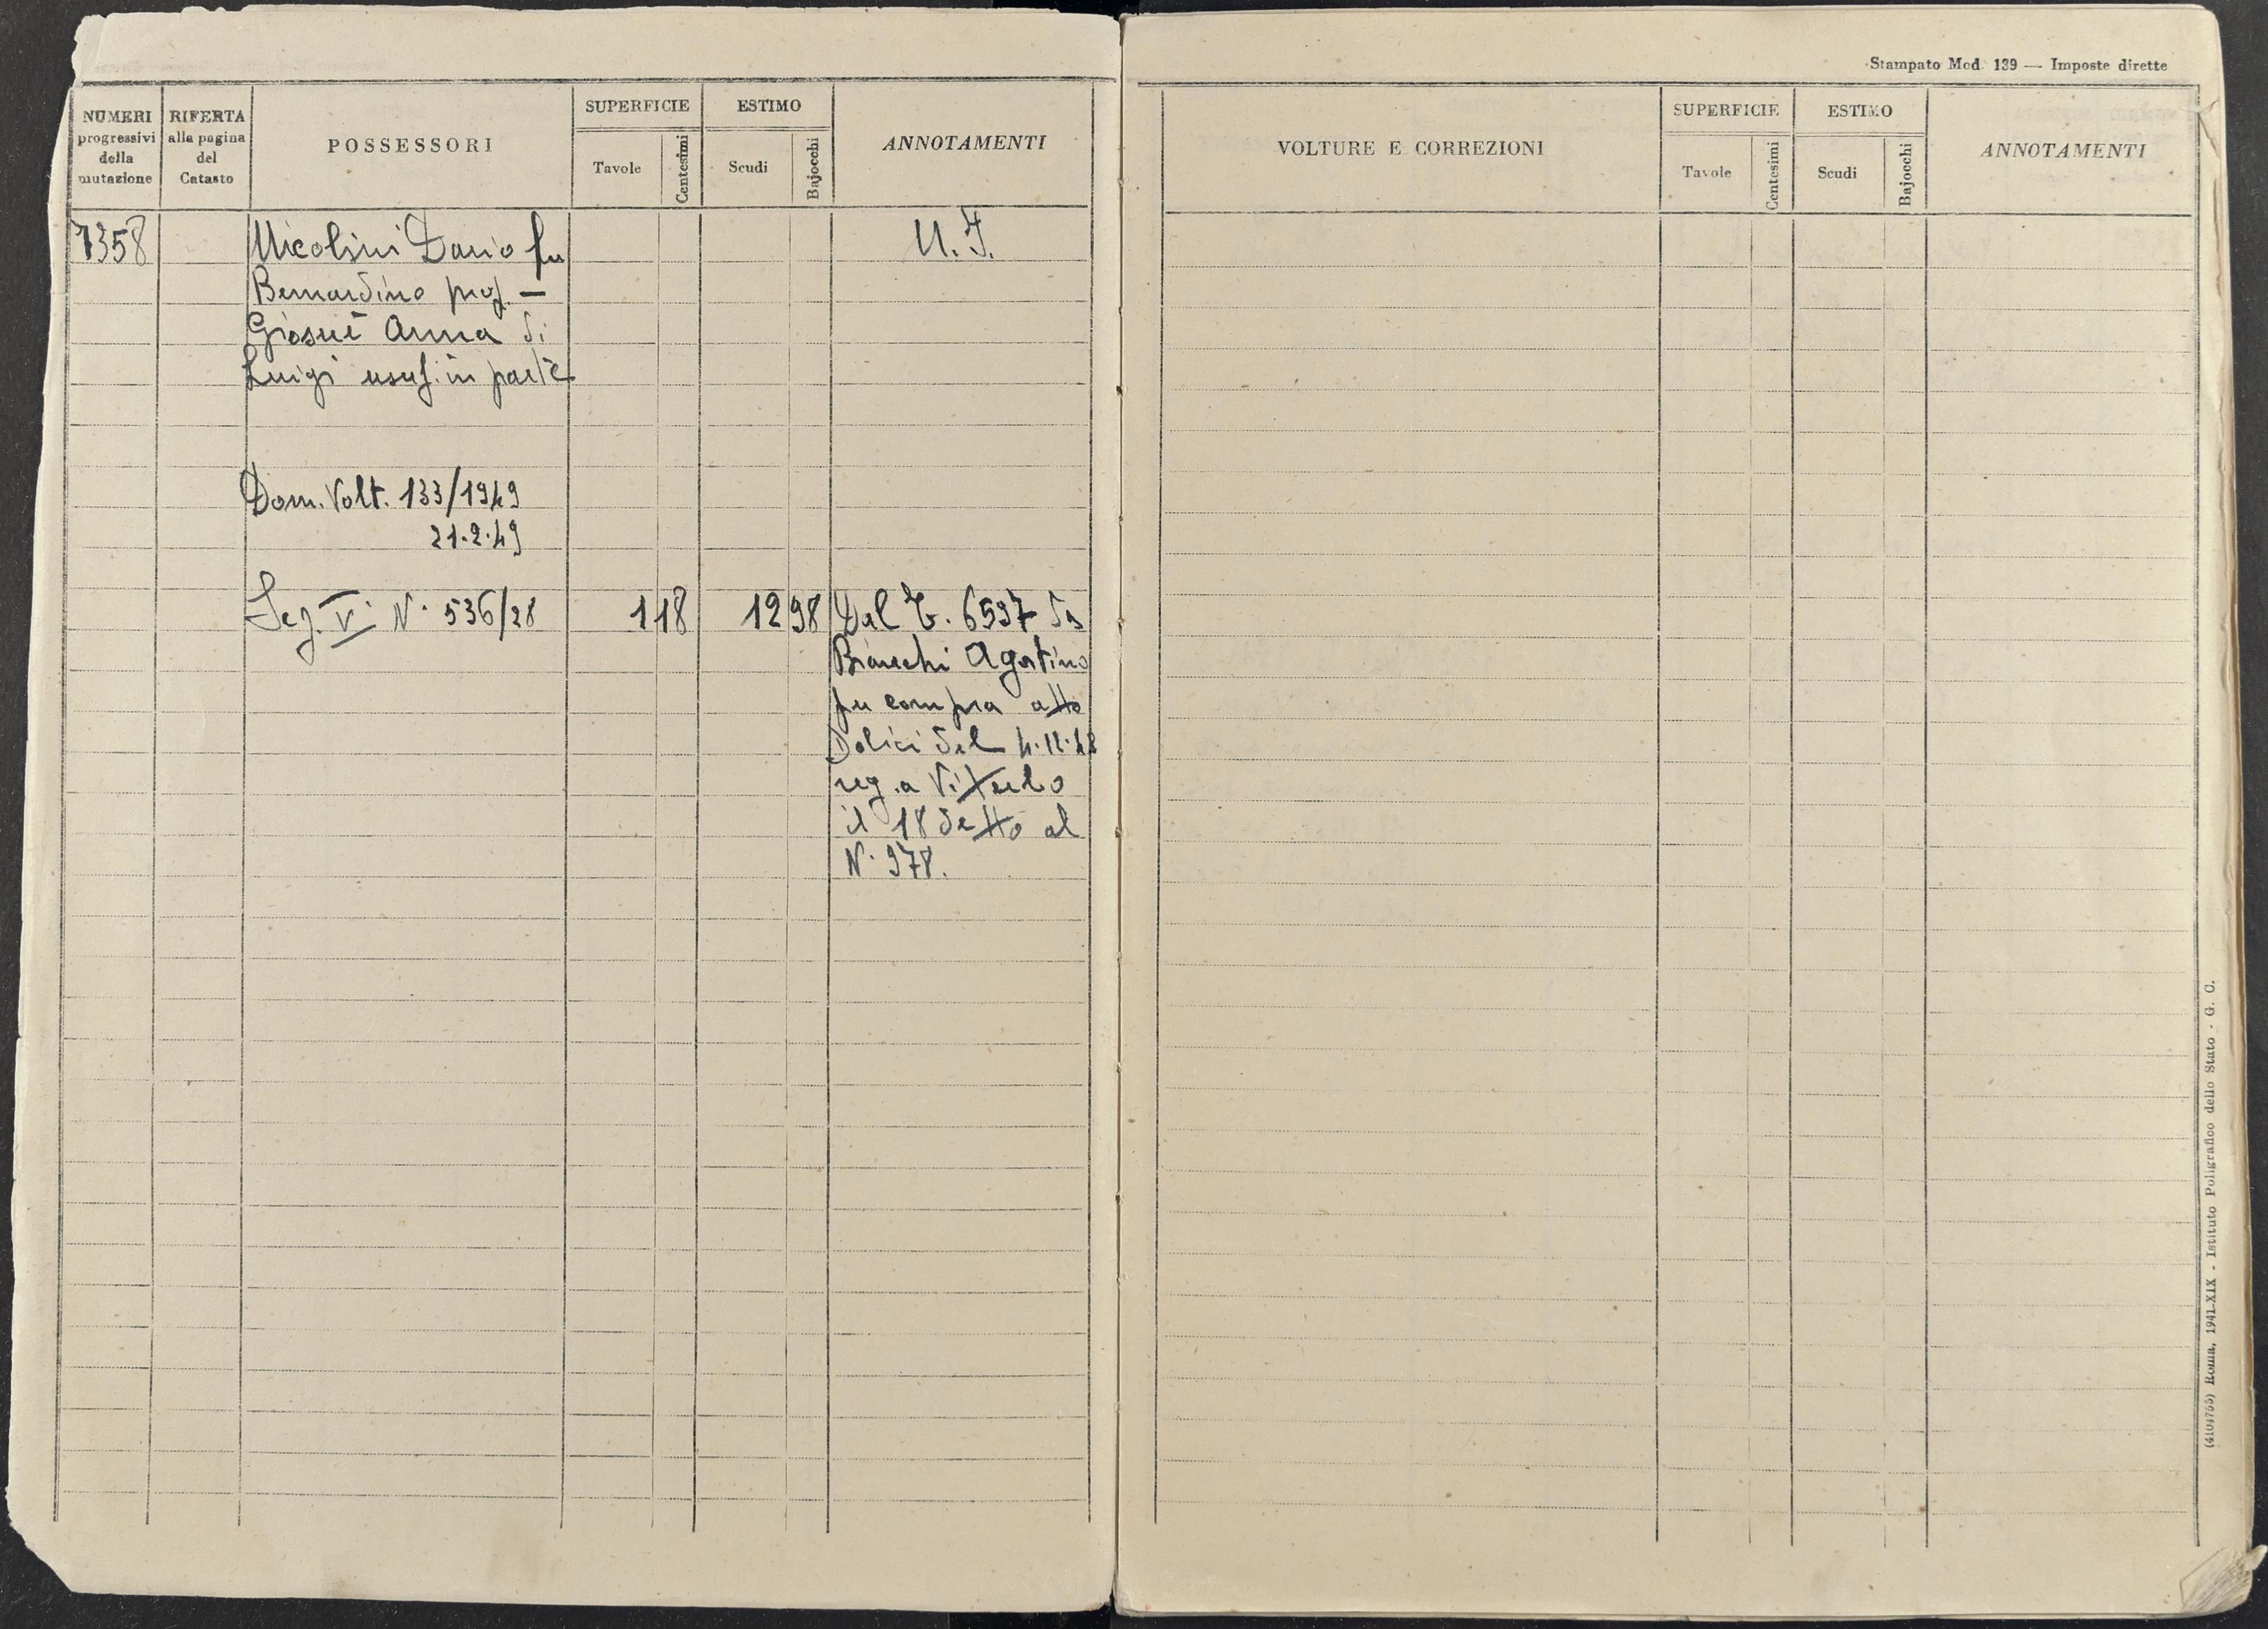 NUMERI
progressivi
della
mutazione
RIFERTA
alla pagina
del
Catasto
POSSESSORI
SUPERFICIE
Tavole
Centesimi
ESTIMO
Scudi
Bajocchi
ANNOTAMENTI
7358
Nicolini Dario fu
U. I.
Bernardino prop. —
Giosuè Anna di
Luigi usuf. in parte
Dom. Volt. 133/1949
21.2.49
Sez. V. N. 536/28
1 18
12 98
Dal T. 6597 da
Bianchi Agostino
per compra atto
Dolici del 4.12.48
reg. a Viterbo
il 18 detto al
N. 978.
Stampato Mod. 139 — Imposte dirette
VOLTURE E CORREZIONI
SUPERFICIE
Tavole
Centesimi
ESTIMO
Scudi
Bajocchi
ANNOTAMENTI
(4104765) Roma, 1941-XIX - Istituto Poligrafico dello Stato - G. C.